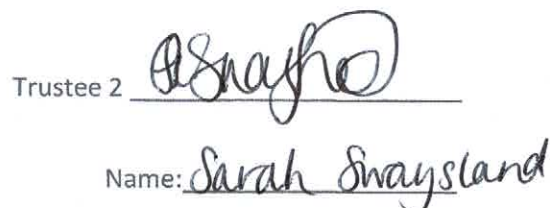 Trustee 2
Name: Sarah Swaysland